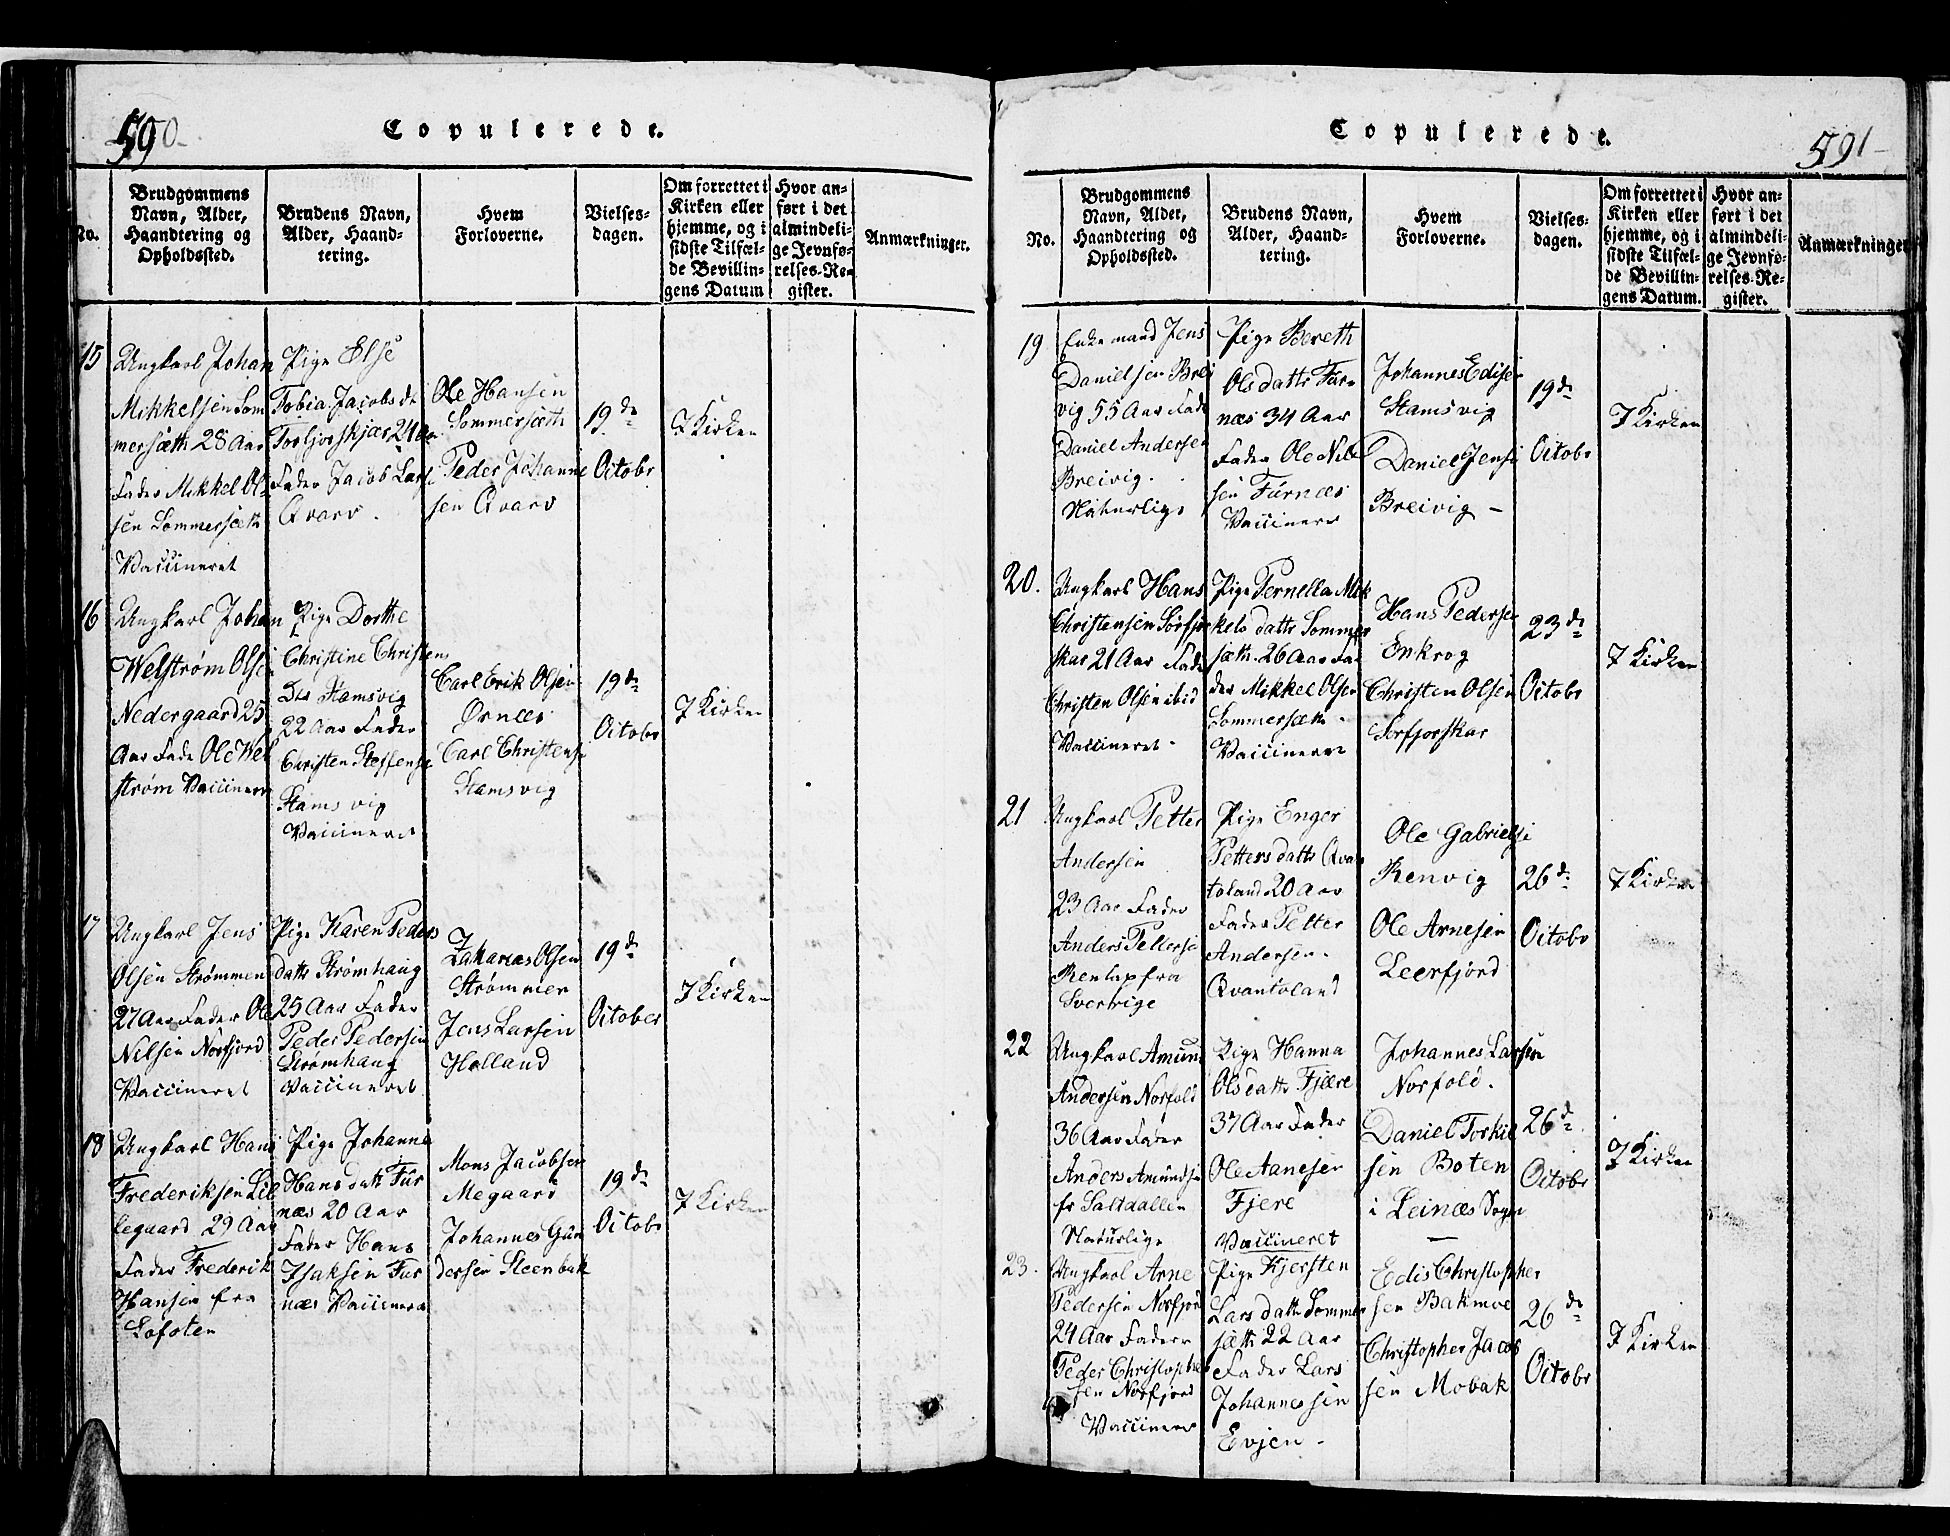 590
Copulerede.
No.
Brudgommens
Navn, Alder,
Haandtering og
Opholdssted.
Brudens Navn,
Alder, Haand-
tering.
Hvem
Forloverne.
Vielses-
dagen.
Om forrettet i
Kirken eller
hjemme, og i
sidste Tilfæl-
de Bevillin-
gens Datum
Hvor an-
ført i det
almindeli-
ge Jevnfø-
relses-Re-
gister.
Anmærkninger.
15
Ungkarl Johan
Mikkelsen Som
mersæth 28 Aar
Fader Mikkel Ol-
sen Sommersæth
Vaccineret
Pige Else
Tobia Jacobsd
Torfjorskjær 24 Aar
Fader Jacob Lars
Qvarv.
Ole Hansen
Sommersæth
Peder Johanne
sen Qvarv
19de
Octobr
I Kirken
16
Ungkarl Johan
Welstrøm Olsen
Nedergaard 25
Aar Fade Ole Wel
strøm Vaccinere
Pige Dorthe
Christine Christens
Dtr Stamsvig
22 Aar Fader
Christen Steffense
Stamsvig
Vaccineret
Carl Erik Olsen
Ørnæs
Carl Christense
Stamsvig
19de
Octobr
I Kirken
17
Ungkarl Jens
Olsen Strømmen
27 Aar Fader Ole
Nilsen Norfjord
Vaccineret
Pige Karen Peders
datts Strømhaug
25 Aar Fader
Peder Pedersen
Strømhaug
Vaccineret
Zakarias Olsen
Strømmer
Jens Larsen
Holland
19de
October
I Kirken
18
Ungkarl Hans
Frederiksen Lil
legaard 29 Aar
Fader Frederik
Hansen fra
Lofoten
Pige Johanna
Hansdatt Fur
næs 20 Aar
Fader Hans
Isaksen Fur
næs Vaccinere
Mons Jacobsen
Megaard
Johannes Gun
dersen Steenbak
19de
Octobr
I Kirken
591
Copulerede.
No.
Brudgommens
Navn, Alder,
Haandtering og
Opholdssted.
Brudens Navn,
Alder, Haand-
tering.
Hvem
Forloverne.
Vielses-
dagen.
Om forrettet i
Kirken eller
hjemme, og i
sidste Tilfæl-
de Bevillin-
gens Datum.
Hvor an-
ført i det
almindeli-
ge Jevnfø-
relses-Re-
gister.
Anmærkninger
19
Enkemand Jens
Danielsen Brei
vig 55 Aar Fade
Daniel Andersen
Breivig.
Naturlige
Pige Bereth
Olsdatts Fur-
næs 34 Aar
Fader Ole Nil
sen Furnæs
Vaccinere
Johannes Edisen
Stamsvig
Daniel Jense
Breivig -
19de
Octobr
I Kirken
20.
Ungkarl Hans
Christensen Sørfjor
skar 21 Aar Fade
Christen Olsen ibid
Vaccineret -
Pige Pernella Mik
kelsdatts Sommer
sæth 26 Aar Fa
der Mikkel Olsen
Sommersæth -
Vaccinere
Hans Pederse
Enkrog
Christen Olsen
Sorfjorskar
23de
Octobr
I Kirken
21
Ungkarl Petter
Andersen
23 Aar Fader
Anders Petterse
Renlap fra
Sverrige
Pige Enger
Pettersdatts Qvan
toland 20 Aar
Fader Petter
Andersen.
Qvantoland
Ole Gabrielse
Renvig
Ole Arnesen
Leerfjord
26de
Octobr
I Kirken
22
Ungkarl Amund
Andersen Norfold
36 Aar Fader
Anders Amundse
fr Saltdallen
Naturlige
Pige Hanna
Olsdatts Fjære
37 Aar Fader
Ole Aanesen
Fjere
Vaccineret
Johannes Larsen
Norfold.
Daniel Torkil
sen Boten
i Leinæs Sogn
26de
Octobr
I Kirken
23.
Ungkarl Arne
Pedersen Norfjord
24 Aar Fader
Peder Christophe
sen Norfjord
Vaccinere
Pige Kjersten
Larsdatts Sommer
sæth 22 Aar
Fader Lars
Johannessen
Evjen -
Edis Christopher
sen Bakmoe
Christopher Jacob
sen Mobak
26de
Octobr
I Kirken